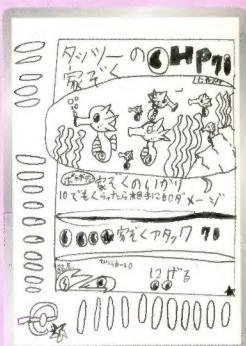 タッツーの HP70
家ぞく
家ぞくのいかり
10でもくらったら相手に60ダメージ
家ぞくアタック 70
にげる